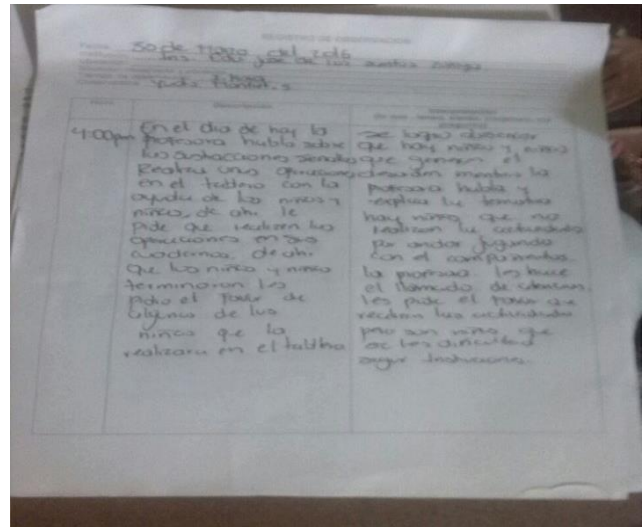 REGISTRO DE OBSERVACION
30 de Marzo del 2016
Ins. Edu José de los santos Zuñiga
1 Hora
Yudis Montiel. S
Hora
Descripcion
4:00pm En el dia de hoy la
profesora hablo sobre
las
Realiza unas operaciones
en el tablero con la
ayuda de los niños y
niñas, de ahi le
pide que realizen las
operaciones en sus
cuadernos, de ahi
que los niños y niñas
terminaron les
pidio el favor de
algunos de los
niños que la
realizara en el tablero
Se logro observar
que hay niños y niños
que generan el
desorden mientras la
profesora habla y
explica la tematica
hay niños que no
realizan las actividades
por andar jugando
con el
la profesora los hace
el llamado de atencion
les pide el favor que
realizen las actividades
pero son niños que
se les dificulta
seguir Instrucciones.